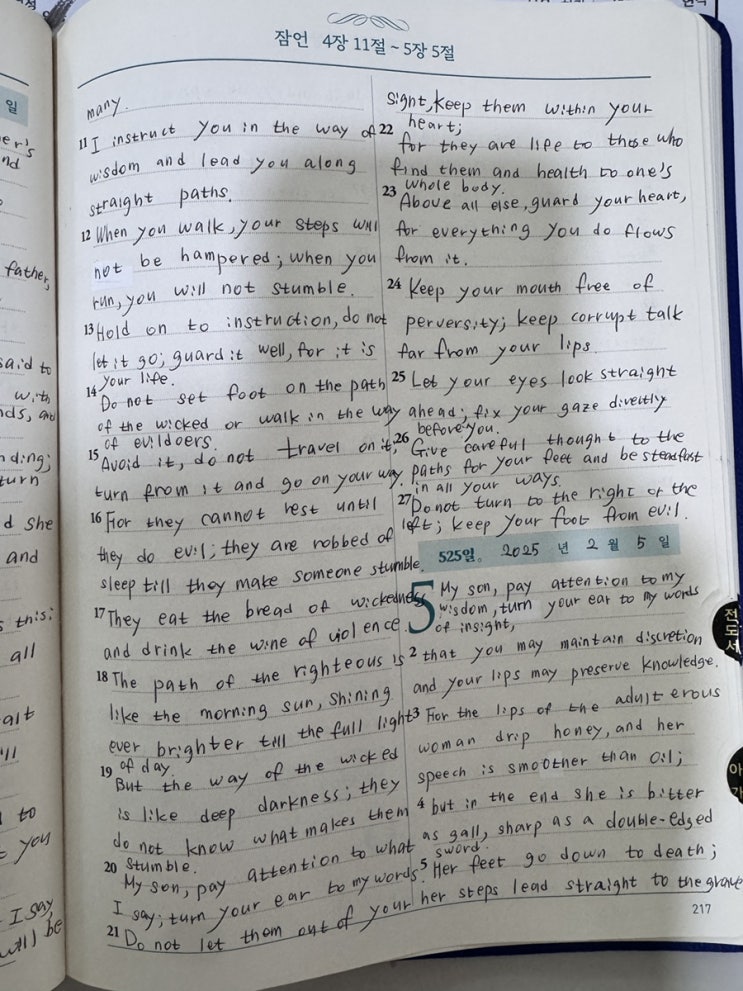 잠언 4장 11절 ~ 5장 5절
many.
11 I instruct you in the way of
wisdom and lead you along
straight paths.
12 When you walk, your steps will
not be hampered; when you
run, you will not stumble.
13 Hold on to instruction, do not
let it go; guard it well, for it is
your life.
14 Do not set foot on the path
of the wicked or walk in the way
of evildoers.
15 Avoid it, do not travel on it;
turn from it and go on your way.
16 For they cannot rest until
they do evil; they are robbed of
sleep till they make someone stumble.
17 They eat the bread of wickedness
and drink the wine of violence.
18 The path of the righteous is
like the morning sun, shining
ever brighter till the full light
of day.
19 But the way of the wicked
is like deep darkness; they
do not know what makes them
stumble.
20 My son, pay attention to what
I say; turn your ear to my words.
21 Do not let them out of your
sight, keep them within your
heart;
22 for they are life to those who
find them and health to one's
whole body.
23 Above all else, guard your heart,
for everything you do flows
from it.
24 Keep your mouth free of
perversity; keep corrupt talk
far from your lips.
25 Let your eyes look straight
ahead; fix your gaze divectly
before you.
26 Give careful thought to the
paths for your feet and be steadfast
in all your ways.
27 Do not turn to the right or the
left; keep your foot from evil.
525일。 2025 년 2 월 5 일
5 My son, pay attention to my
wisdom, turn your ear to my words
of insight,
2 that you may maintain discretion
and your lips may preserve knowledge.
3 For the lips of the adulterous
woman drip honey, and her
speech is smoother than oil;
4 but in the end she is bitter
as gall, sharp as a double-edged
sword.
5 Her feet go down to death;
her steps lead straight to the grave
217
일
er's
nd
father,
said to
with
nds, an
nding;
turn
d she
and
s this:
all
alt
'll
d to
t you
I say,
will be
전도서
아가